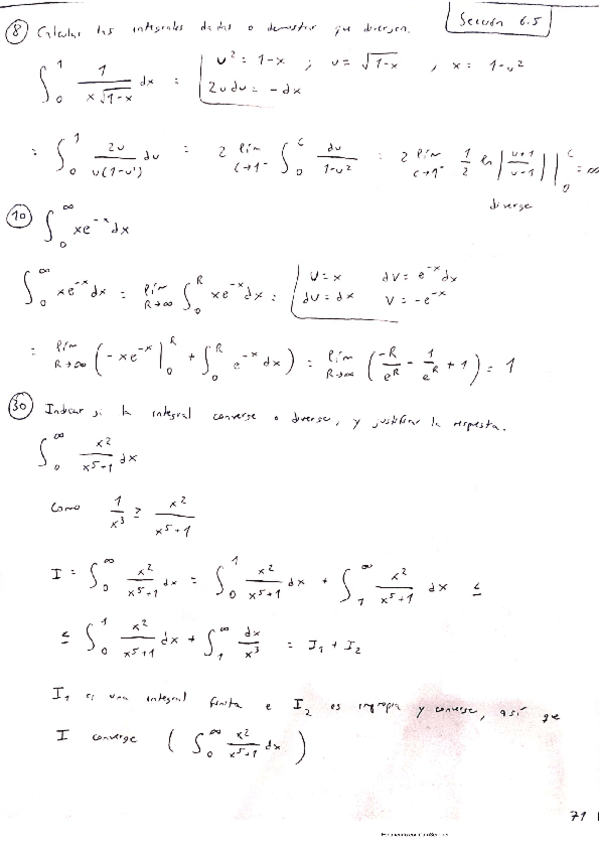 Sección 6.5
⑧ Calcular las integrales dadas o demostrar que divergen.
∫₀¹ 1/(x√(1-x)) dx = | u² = 1-x ; u = √(1-x) , x = 1-u²
2u du = -dx
= ∫₀¹ 2u/(u(1-u²)) du = 2 lím c→1⁻ ∫₀ᶜ du/(1-u²) = 2 lím c→1⁻ 1/2 ln|(u+1)/(u-1)| |₀ᶜ = ∞
diverge
⑩ ∫₀^∞ xe⁻ˣ dx
∫₀^∞ xe⁻ˣ dx = lím R→∞ ∫₀ᴿ xe⁻ˣ dx = | U = x dV = e⁻ˣ dx
dU = dx V = -e⁻ˣ
= lím R→∞ (-xe⁻ˣ |₀ᴿ + ∫₀ᴿ e⁻ˣ dx) = lím R→∞ (-R/eᴿ - 1/eᴿ + 1) = 1
㉚ Indicar si la integral converge o diverge, y justificar la respuesta.
∫₀^∞ x²/(x⁵+1) dx
Como 1/x³ ≥ x²/(x⁵+1)
I = ∫₀^∞ x²/(x⁵+1) dx = ∫₀¹ x²/(x⁵+1) dx + ∫₁^∞ x²/(x⁵+1) dx ≤
≤ ∫₀¹ x²/(x⁵+1) dx + ∫₁^∞ dx/x³ = I₁ + I₂
I₁ es una integral finita e I₂ es impropia y converge, así que
I converge (∫₀^∞ x²/(x⁵+1) dx)
71